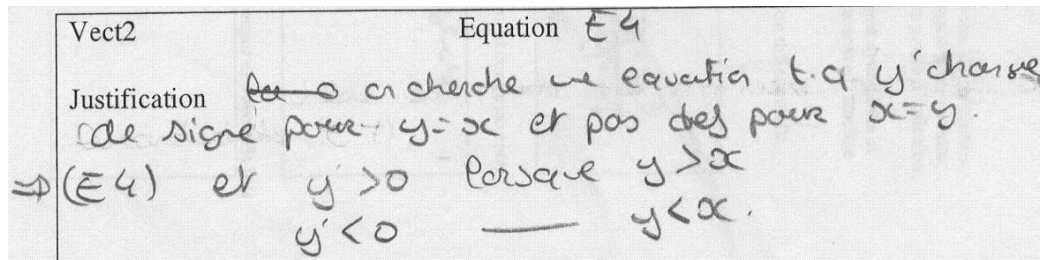 Vect2 Equation E4
Justification on cherche une equation t.q y' change
de signe pour y=x et pas pour x=y.
⇒ (E4) et y'>0 lorsque y>x
y'<0 — y<x.